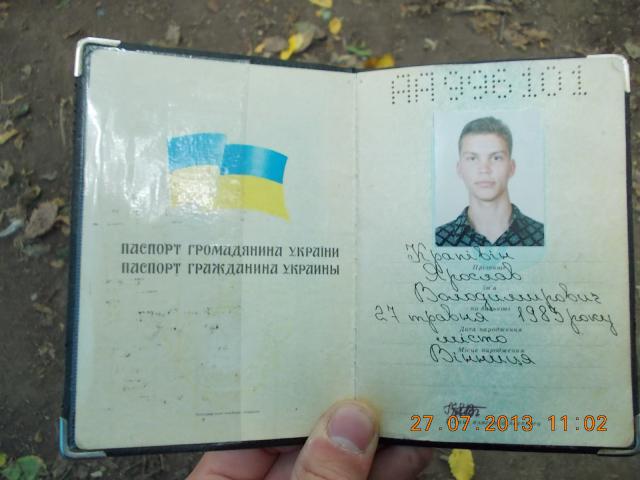 ПАСПОРТ ГРОМАДЯНИНА УКРАЇНИ
ПАСПОРТ ГРАЖДАНИНА УКРАИНЫ
АА 996101
Крапівін
Прізвище
Ярослав
Ім'я
Володимирович
По батькові
27 травня 1983 року
Дата народження
місто
Місце народження
Вінниця
27.07.2013 11:02